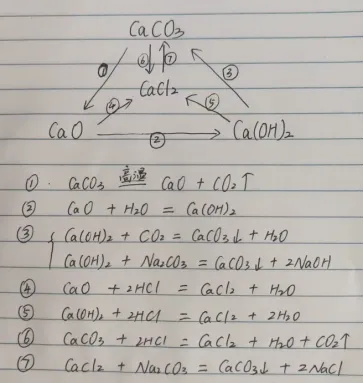 CaCO₃
① ⑥ ⑦ ③
CaCl₂
④ ⑤
CaO ② Ca(OH)₂
① . CaCO₃ 高温 CaO + CO₂↑
② CaO + H₂O = Ca(OH)₂
③ { Ca(OH)₂ + CO₂ = CaCO₃↓ + H₂O
Ca(OH)₂ + Na₂CO₃ = CaCO₃↓ + 2NaOH
④ CaO + 2HCl = CaCl₂ + H₂O
⑤ Ca(OH)₂ + 2HCl = CaCl₂ + 2H₂O
⑥ CaCO₃ + 2HCl = CaCl₂ + H₂O + CO₂↑
⑦ CaCl₂ + Na₂CO₃ = CaCO₃↓ + 2NaCl